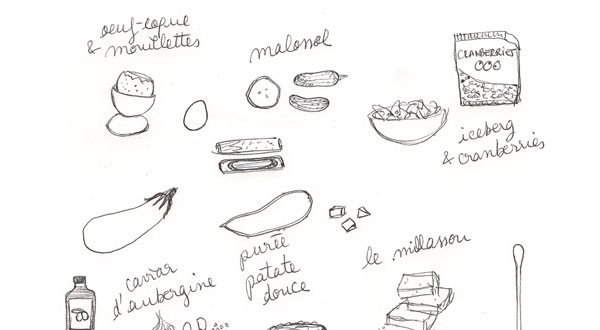 oeuf-coque
& mouillettes
malossol
CRANBERRIES
iceberg
& cranberries
purée
patate
douce
le millassou
caviar
d'aubergine